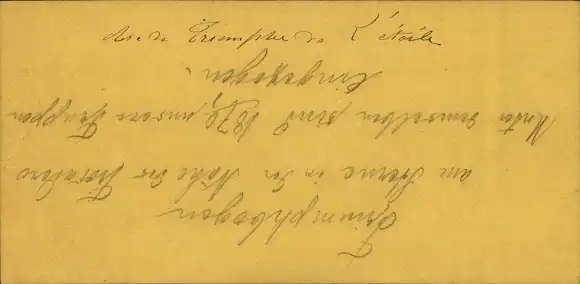 Arc de Triomphe de L'étoile
Triumphbogen
am Sterne in der Nähe des Trocadero
Unter demselben sind 1870 unsere Truppen
eingezogen.